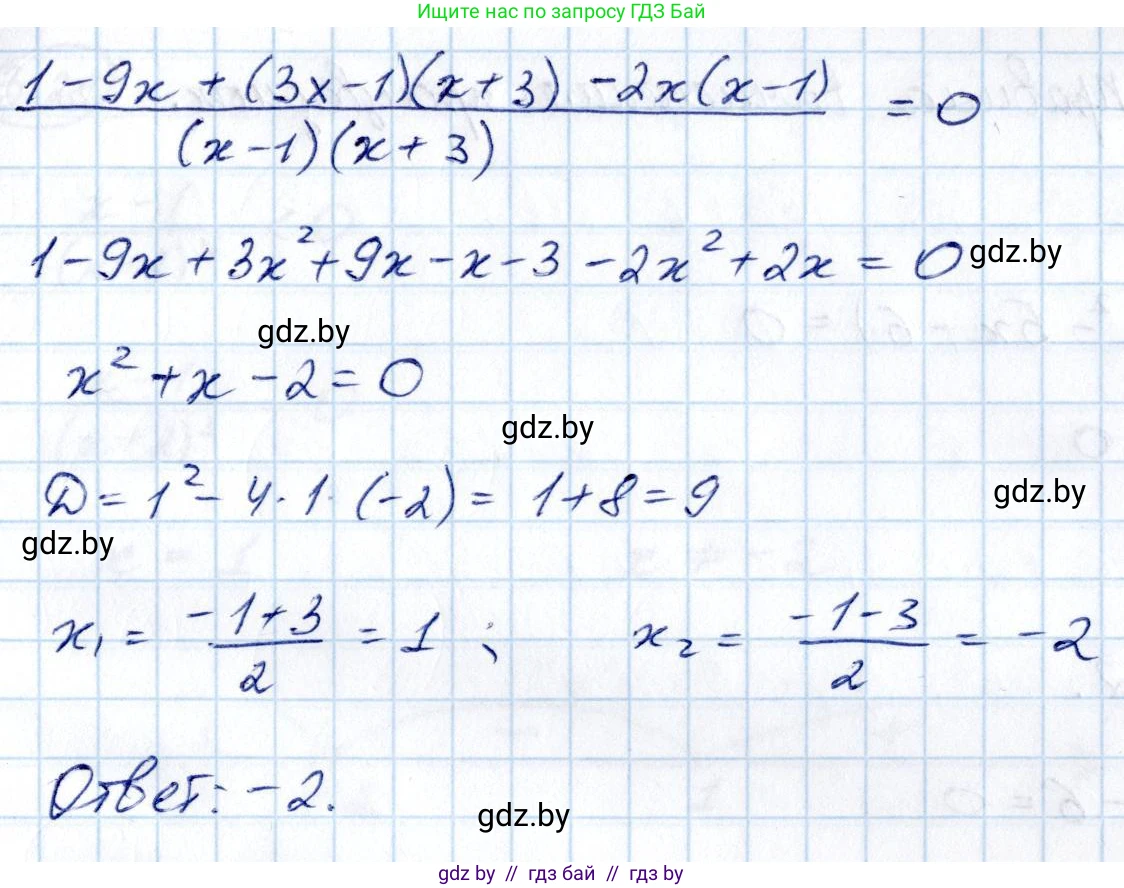 Ищите нас по запросу ГДЗ Бай
1 - 9x + (3x - 1)(x + 3) - 2x(x - 1) = 0
(x - 1)(x + 3)
1 - 9x + 3x² + 9x - x - 3 - 2x² + 2x = 0
gdz.by
gdz.by
x² + x - 2 = 0
gdz.by
Д = 1² - 4 · 1 · (-2) = 1 + 8 = 9
gdz.by
gdz.by
x₁ = (-1 + 3)/2 = 1 ; x₂ = (-1 - 3)/2 = -2
Ответ: -2.
gdz.by
gdz by // гдз бай // гдз by